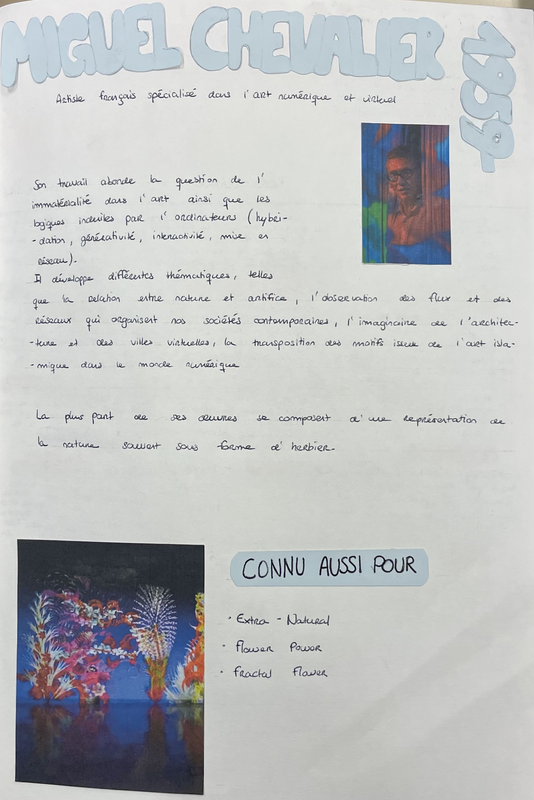 MIGUEL CHEVALIER
1959-
Artiste français spécialisé dans l'art numérique et virtuel
Son travail aborde la question de l'
immatérialité dans l'art ainsi que les
logiques induites par l'ordinateurs (hybri-
-dation, générativité, interactivité, mise en
réseau).
Il développe différentes thématiques, telles
que la relation entre nature et artifice, l'observation des flux et des
réseaux qui organisent nos sociétés contemporaines, l'imaginaire de l'architec-
-ture et des villes virtuelles, la transposition des motifs issus de l'art isla-
-mique dans le monde numérique
La plus part de ses œuvres se composent d'une représentation de
la nature souvent sous forme d'herbier.
CONNU AUSSI POUR
· Extra-Natural
· Flower Power
· Fractal Flower